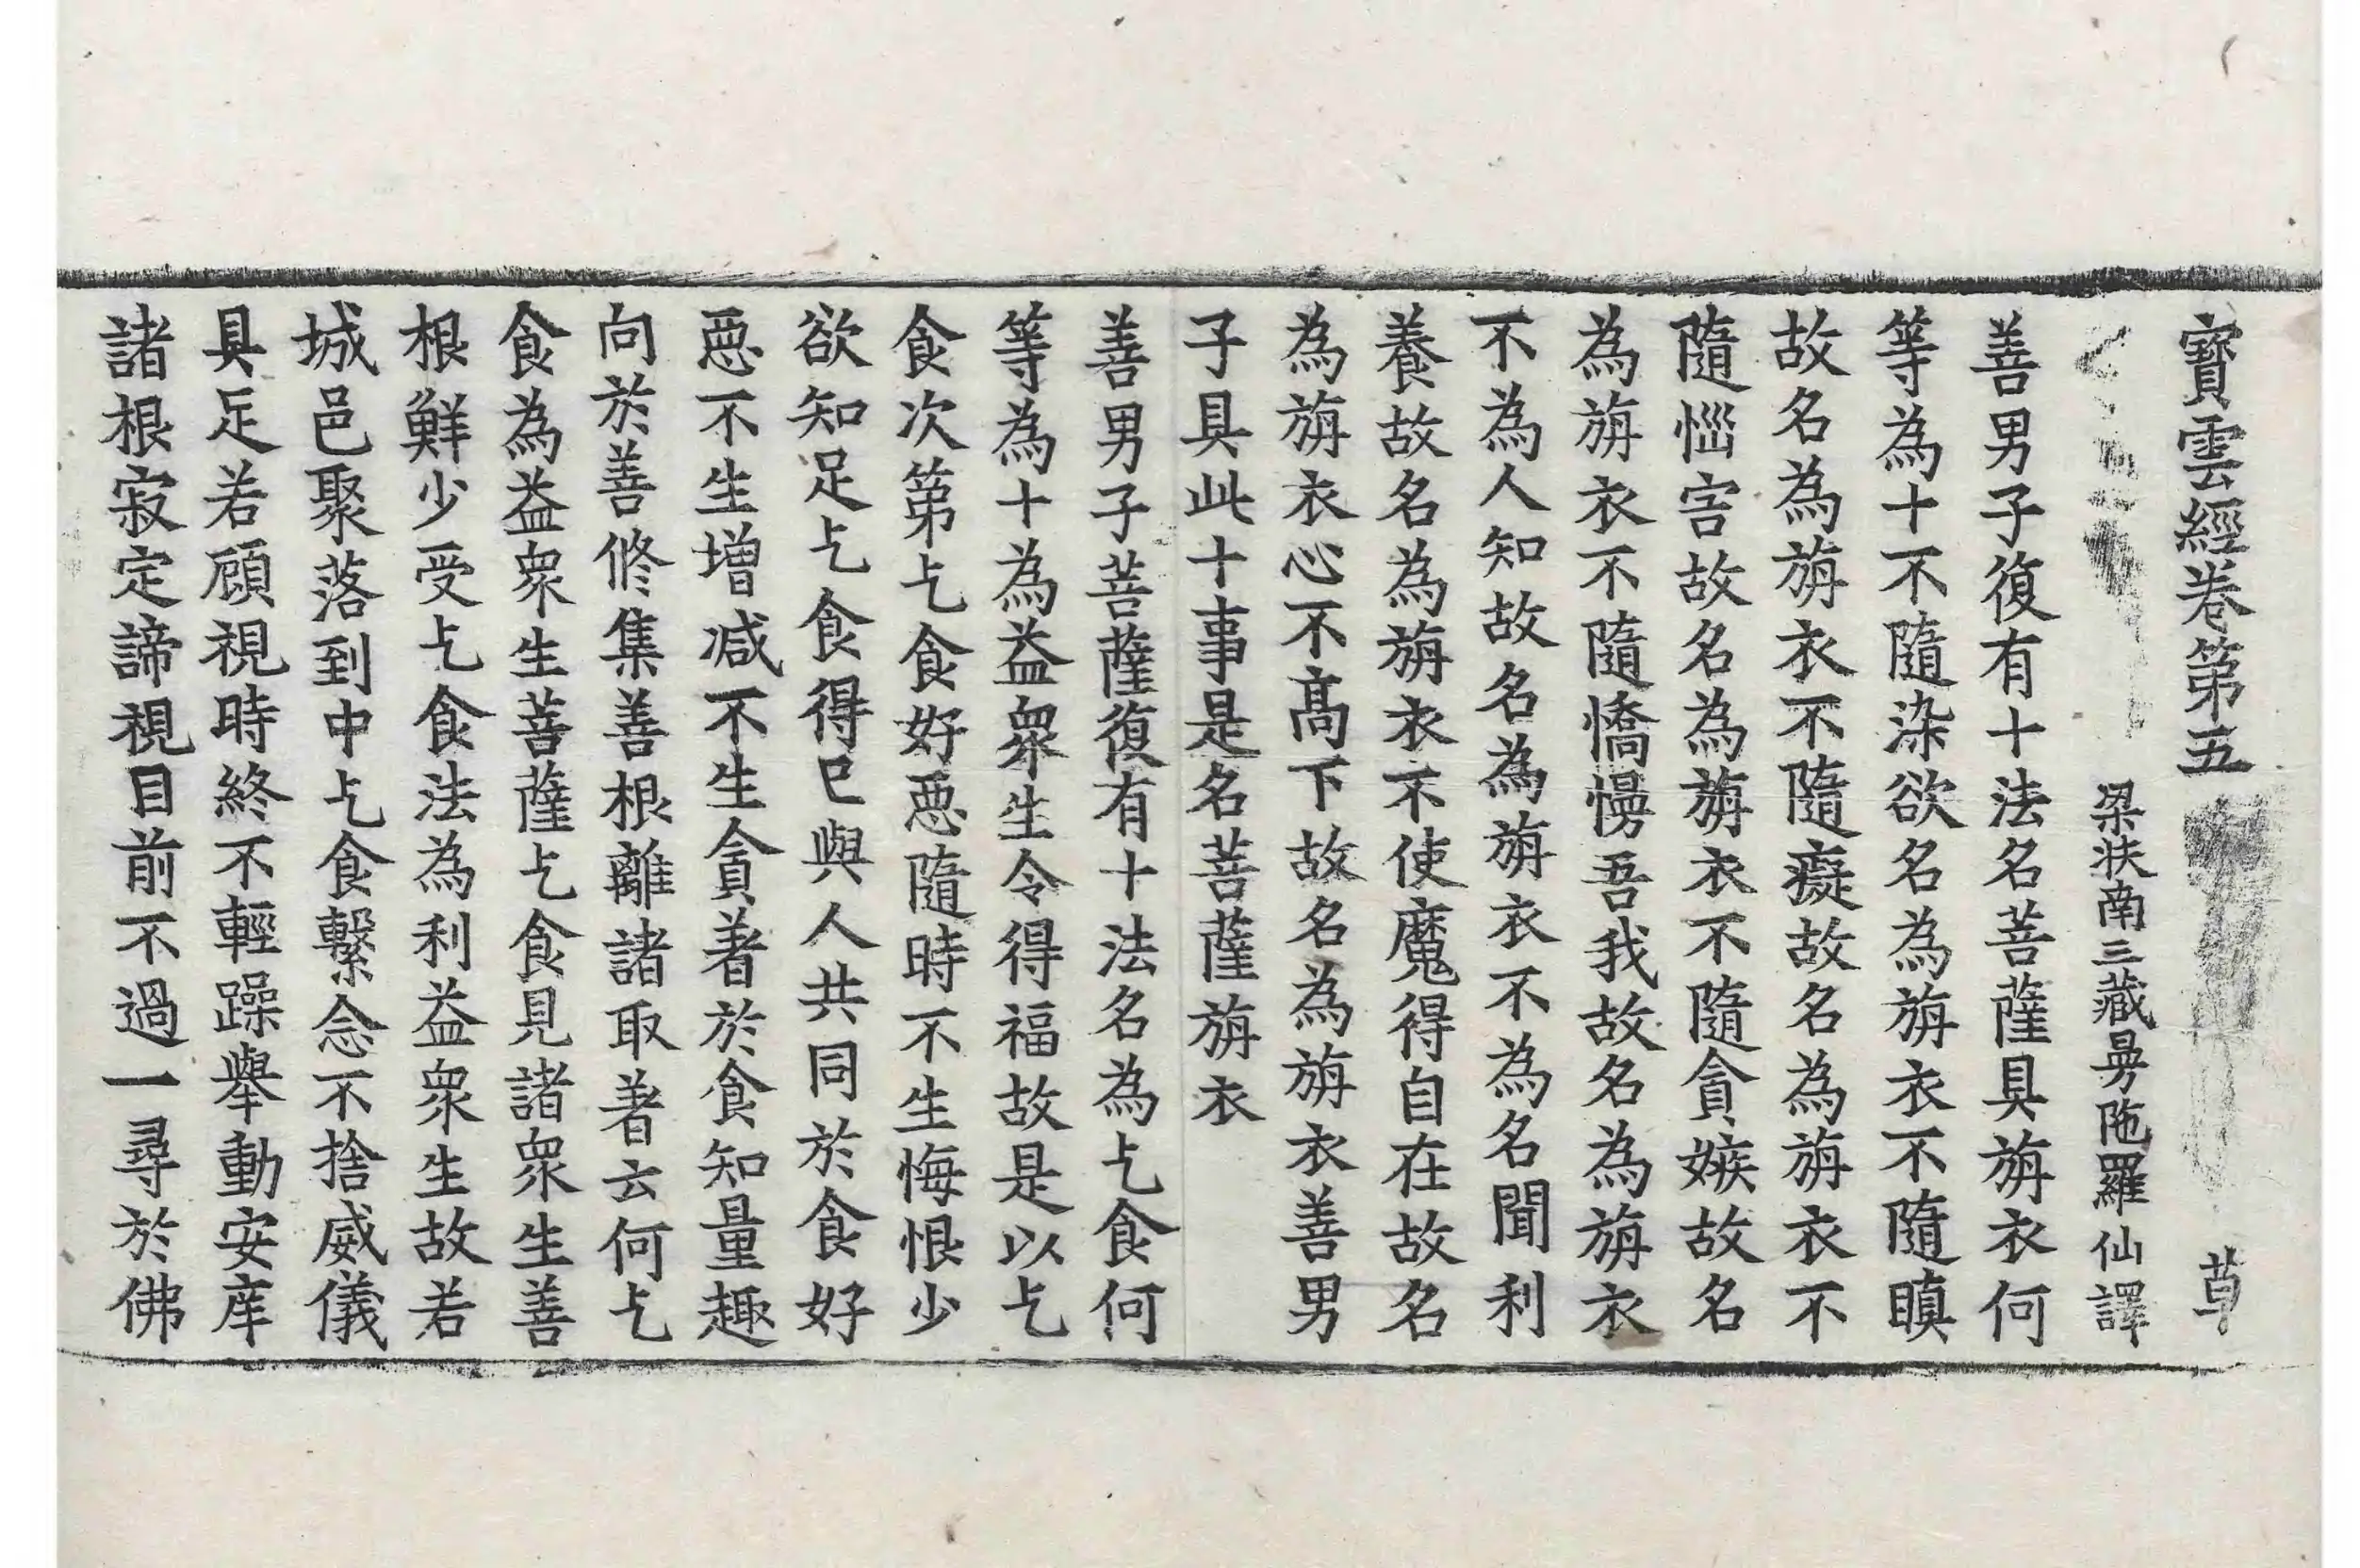 寶雲經卷第五 草
梁扶南三藏曼陁羅仙譯
善男子復有十法名菩薩具旃衣何
等為十不隨染欲名為旃衣不隨瞋
故名為旃衣不隨癡故名為旃衣不
隨惱害故名為旃衣不隨貪嫉故名
為旃衣不隨憍慢吾我故名為旃衣
不為人知故名為旃衣不為名聞利
養故名為旃衣不使魔得自在故名
為旃衣心不高下故名為旃衣善男
子具此十事是名菩薩旃衣
善男子菩薩復有十法名為乞食何
等為十為益衆生令得福故是以乞
食次第乞食好惡隨時不生悔恨少
欲知足乞食得已與人共同於食好
惡不生增減不生貪著於食知量趣
向於善修集善根離諸取著云何乞
食為益衆生菩薩乞食見諸衆生善
根鮮少受乞食法為利益衆生故若
城邑聚落到中乞食繫念不捨威儀
具足若顧視時終不輕躁舉動安庠
諸根寂定諦視目前不過一尋於佛